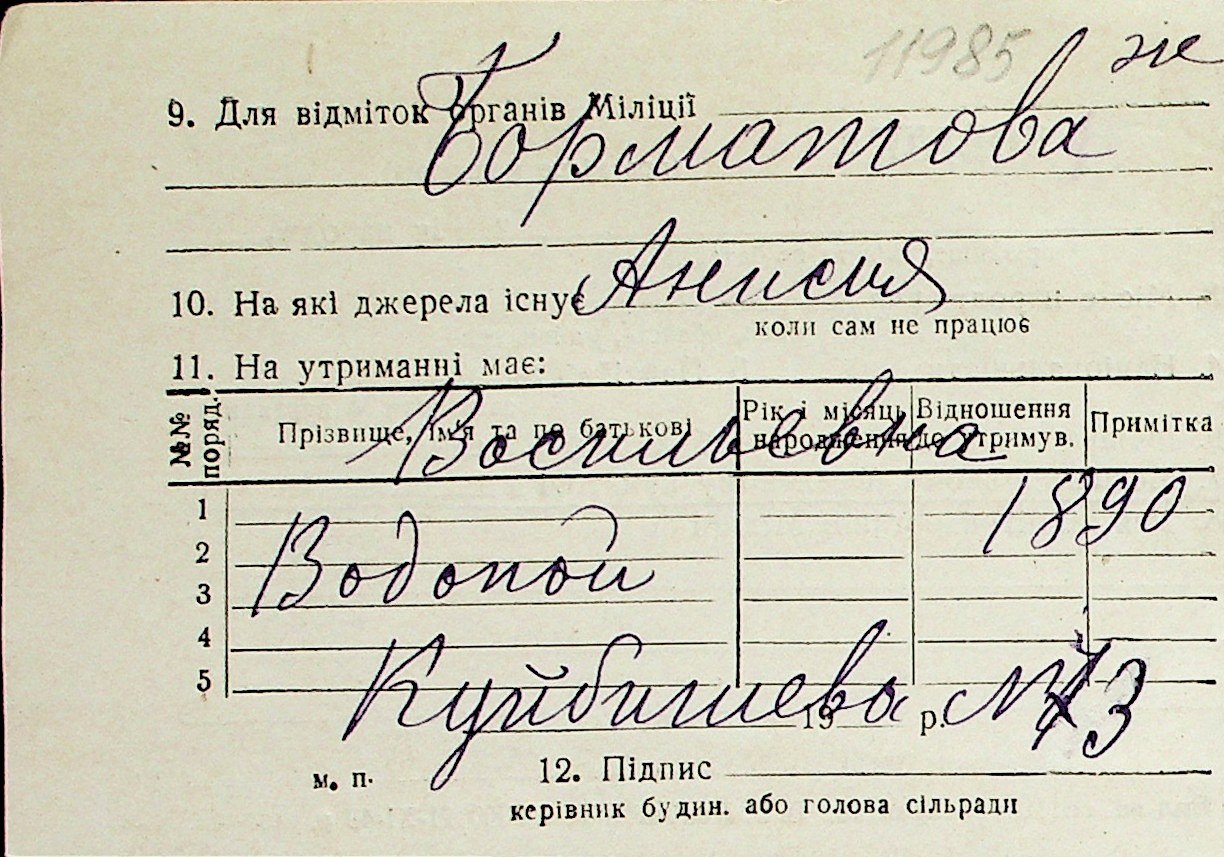 11985 же
9. Для відміток органів Міліції
Борматова
10. На які джерела існує Анисия
коли сам не працює
11. На утриманні має:
№№ поряд. Прізвище, ім'я та по батькові Рік і місяць народження Відношення до утримув. Примітка
Васильевна
1 1890
2 Водопой
3
4
5
Куйбишева 19 р. № 73
м. п. 12. Підпис
керівник будин. або голова сільради